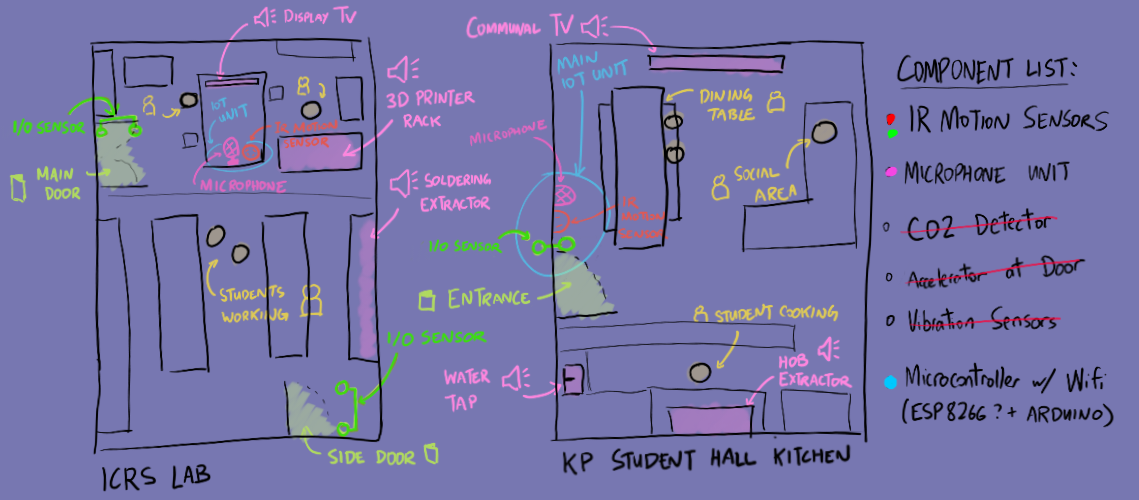 DISPLAY TV
I/O SENSOR
MAIN
DOOR
IOT
UNIT
IR MOTION
SENSOR
MICROPHONE
3D PRINTER
RACK
SOLDERING
EXTRACTOR
STUDENTS
WORKING
I/O SENSOR
SIDE DOOR
ICRS LAB
COMMUNAL TV
MAIN
IOT UNIT
MICROPHONE
DINING
TABLE
SOCIAL
AREA
IR
MOTION
SENSOR
I/O SENSOR
ENTRANCE
STUDENT COOKING
WATER
TAP
HOB
EXTRACTOR
KP STUDENT HALL KITCHEN
COMPONENT LIST:
IR MOTION SENSORS
MICROPHONE UNIT
CO2 Detector
Accelerator at Door
Vibration Sensors
Microcontroller w/ Wifi
(ESP8266 ? + ARDUINO)